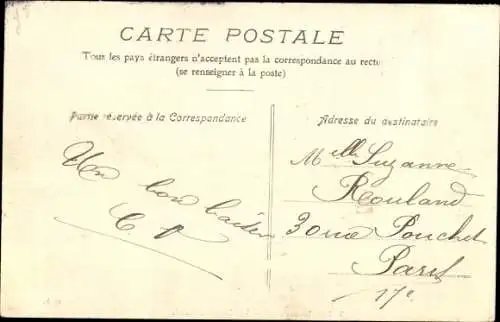 CARTE POSTALE
Tous les pays étrangers n'acceptent pas la correspondance au recto
(se renseigner à la poste)
Partie réservée à la Correspondance
Un bon baiser
C P
Adresse du destinataire
Melle Suzanne
Rouland
30 rue Pouchet
Paris
17e